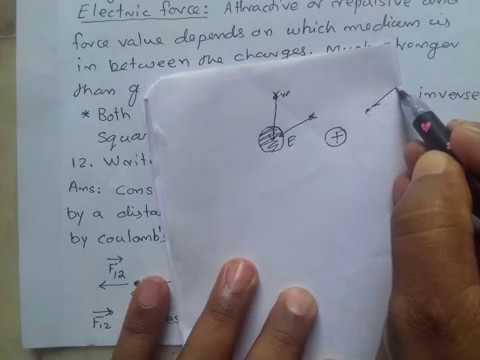 Electric force: Attractive or repulsive and
force value depends on which medium is
in between the charges. Much stronger
than g
* Both inverse
Squar
W
E
+
12. Writi
Ans: Cons
by a dista
by coulomb's
F12
F12 es